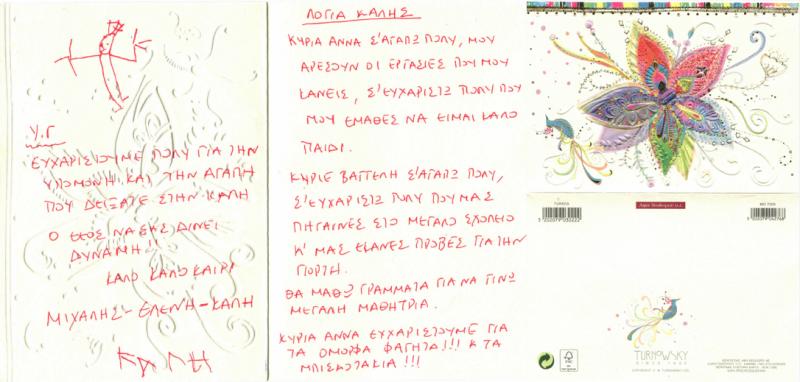 Υ.Γ
ΕΥΧΑΡΙΣΤΟΥΜΕ ΠΟΛΥ ΓΙΑ ΤΗΝ
ΥΠΟΜΟΝΗ ΚΑΙ ΤΗΝ ΑΓΑΠΗ
ΠΟΥ ΔΕΙΞΑΤΕ ΣΤΗΝ ΚΑΛΗ
Ο ΘΕΟΣ ΝΑ ΣΑΣ ΔΙΝΕΙ
ΔΥΝΑΜΗ!!
ΚΑΛΟ ΚΑΛΟΚΑΙΡΙ
ΜΙΧΑΛΗΣ-ΕΛΕΝΗ-ΚΑΛΗ
ΚΑΛΗ
ΛΟΓΙΑ ΚΑΛΗΣ
ΚΥΡΙΑ ΑΝΝΑ Σ'ΑΓΑΠΩ ΠΟΛΥ, ΜΟΥ
ΑΡΕΣΟΥΝ ΟΙ ΕΡΓΑΣΙΕΣ ΠΟΥ ΜΟΥ
ΚΑΝΕΙΣ, Σ'ΕΥΧΑΡΙΣΤΩ ΠΟΛΥ ΠΟΥ
ΜΟΥ ΕΜΑΘΕΣ ΝΑ ΕΙΜΑΙ ΚΑΛΟ
ΠΑΙΔΙ.
ΚΥΡΙΕ ΒΑΓΓΕΛΗ Σ'ΑΓΑΠΩ ΠΟΛΥ,
Σ'ΕΥΧΑΡΙΣΤΩ ΠΟΛΥ ΠΟΥ ΜΑΣ
ΠΗΓΑΙΝΕΣ ΣΤΟ ΜΕΓΑΛΟ ΣΧΟΛΕΙΟ
Κ' ΜΑΣ ΕΚΑΝΕΣ ΠΡΟΒΕΣ ΓΙΑ ΤΗΝ
ΓΙΟΡΤΗ.
ΘΑ ΜΑΘΩ ΓΡΑΜΜΑΤΑ ΓΙΑ ΝΑ ΓΙΝΩ
ΜΕΓΑΛΗ ΜΑΘΗΤΡΙΑ.
ΚΥΡΙΑ ΑΝΝΑ ΕΥΧΑΡΙΣΤΟΥΜΕ ΓΙΑ
ΤΑ ΟΜΟΡΦΑ ΦΑΓΗΤΑ!!! Κ ΤΑ
ΜΠΙΣΚΟΤΑΚΙΑ!!!
TURNOWSKY
FSC